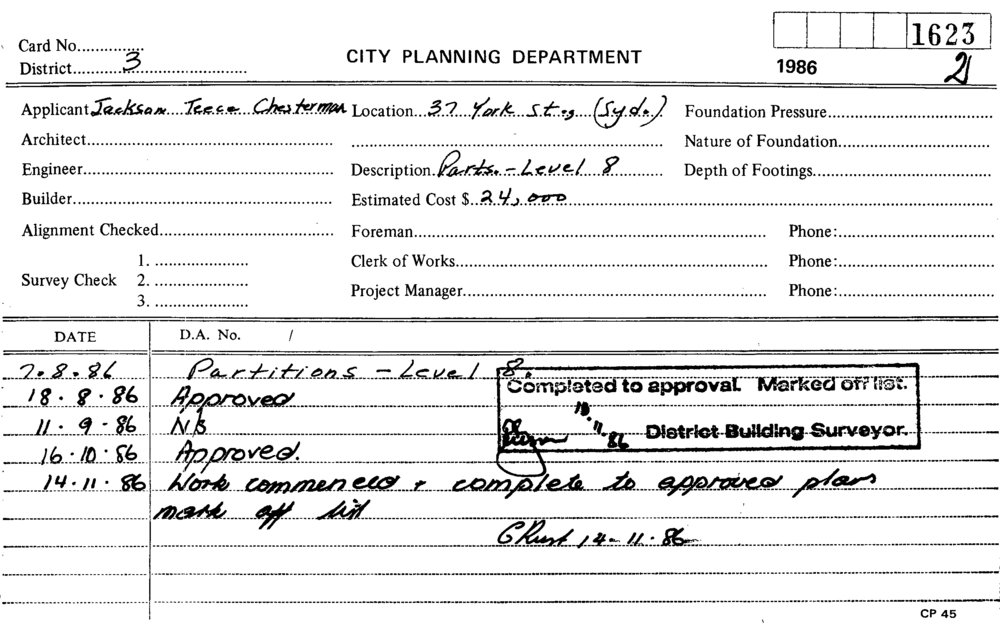 1623
Card No.
District 3
CITY PLANNING DEPARTMENT
1986 21
Applicant Jackson Teece Chesterman Location 37 York St., (Syd.) Foundation Pressure
Architect Nature of Foundation
Engineer Description Parts. - Level 8 Depth of Footings
Builder Estimated Cost $ 24,000
Alignment Checked Foreman Phone:
1. Clerk of Works Phone:
Survey Check 2.
3. Project Manager Phone:
DATE D.A. No. /
7.8.86 Partitions - Level 8.
18.8.86 Approved
11.9.86 NB
16.10.86 Approved.
14.11.86 Work commenced + complete to approved plans
mark off list
14-11.86
Completed to approval. Marked off list.
18.11.86 District Building Surveyor.
CP 45